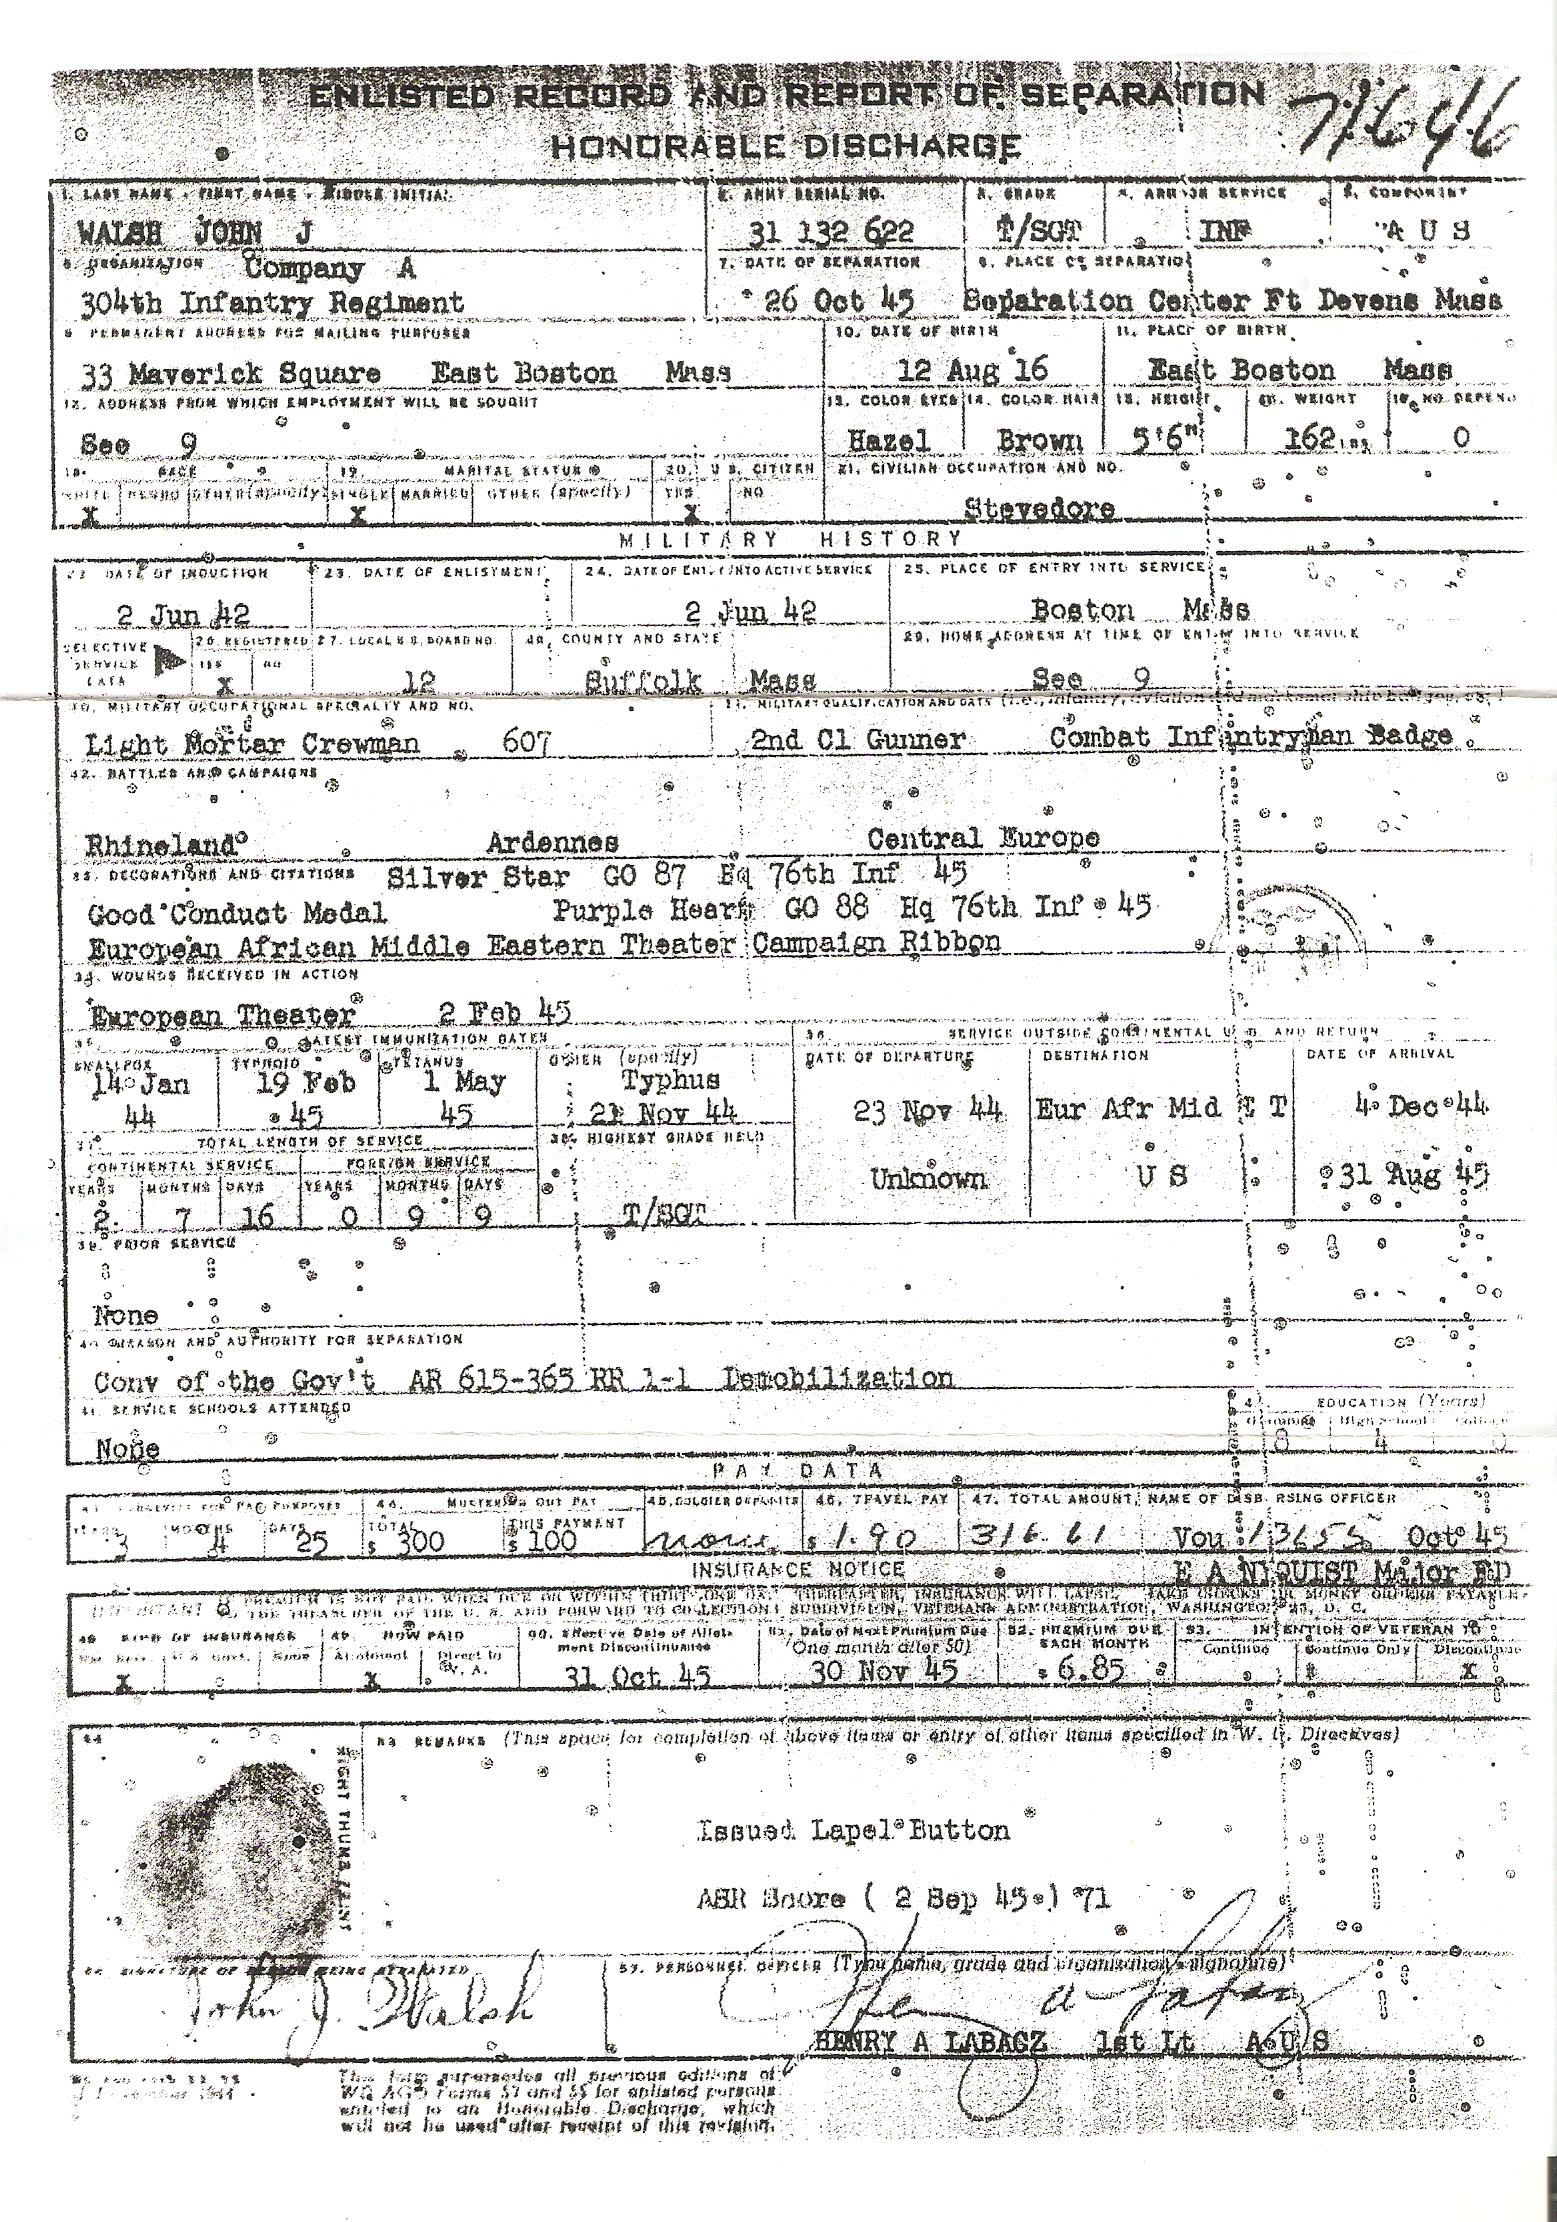 ENLISTED RECORD AND REPORT OF SEPARATION
HONORABLE DISCHARGE
1. LAST NAME - FIRST NAME - MIDDLE INITIAL
2. ARMY SERIAL NO.
3. GRADE
4. ARM OR SERVICE
5. COMPONENT
WALSH JOHN J
31 132 622
T/SGT
INF
A U S
6. ORGANIZATION Company A
7. DATE OF SEPARATION
8. PLACE OF SEPARATION
304th Infantry Regiment
26 Oct 45
Separation Center Ft Devens Mass
9. PERMANENT ADDRESS FOR MAILING PURPOSES
10. DATE OF BIRTH
11. PLACE OF BIRTH
33 Maverick Square East Boston Mass
12 Aug 16
East Boston Mass
12. ADDRESS FROM WHICH EMPLOYMENT WILL BE SOUGHT
13. COLOR EYES
14. COLOR HAIR
15. HEIGHT
16. WEIGHT
17. NO. DEPEND
See 9
Hazel
Brown
5'6"
162 LBS.
0
18. RACE
19. MARITAL STATUS
20. U.S. CITIZEN
21. CIVILIAN OCCUPATION AND NO.
WHITE NEGRO OTHER (specify) SINGLE MARRIED OTHER (specify) YES NO
X X X
Stevedore
MILITARY HISTORY
22. DATE OF INDUCTION
23. DATE OF ENLISTMENT
24. DATE OF ENTRY INTO ACTIVE SERVICE
25. PLACE OF ENTRY INTO SERVICE
2 Jun 42
2 Jun 42
Boston Mass
SELECTIVE SERVICE DATA
26. REGISTERED
27. LOCAL S.S. BOARD NO.
28. COUNTY AND STATE
29. HOME ADDRESS AT TIME OF ENTRY INTO SERVICE
YES NO
X
12
Suffolk Mass
See 9
30. MILITARY OCCUPATIONAL SPECIALTY AND NO.
31. MILITARY QUALIFICATION AND DATE (i.e., infantry, aviation and marksmanship badges, etc.)
Light Mortar Crewman 607
2nd Cl Gunner Combat Infantryman Badge
32. BATTLES AND CAMPAIGNS
Rhineland Ardennes Central Europe
33. DECORATIONS AND CITATIONS Silver Star GO 87 Hq 76th Inf 45
Good Conduct Medal Purple Heart GO 88 Hq 76th Inf 45
European African Middle Eastern Theater Campaign Ribbon
34. WOUNDS RECEIVED IN ACTION
European Theater 2 Feb 45
35. LATEST IMMUNIZATION DATES
36. SERVICE OUTSIDE CONTINENTAL U.S. AND RETURN
SMALLPOX TYPHOID TETANUS OTHER (specify)
DATE OF DEPARTURE DESTINATION DATE OF ARRIVAL
14 Jan 19 Feb 1 May Typhus
44 45 45 21 Nov 44
23 Nov 44 Eur Afr Mid E T 4 Dec 44
37. TOTAL LENGTH OF SERVICE
38. HIGHEST GRADE HELD
CONTINENTAL SERVICE FOREIGN SERVICE
Unknown U S 31 Aug 45
YEARS MONTHS DAYS YEARS MONTHS DAYS
2 7 16 0 9 9
T/SGT
39. PRIOR SERVICE
None
40. REASON AND AUTHORITY FOR SEPARATION
Conv of the Gov't AR 615-365 RR 1-1 Demobilization
41. SERVICE SCHOOLS ATTENDED
42. EDUCATION (Years)
Grammar High School College
None
8 4 0
PAY DATA
43. LONGEVITY FOR PAY PURPOSES
44. MUSTERING OUT PAY
45. SOLDIER DEPOSITS
46. TRAVEL PAY
47. TOTAL AMOUNT, NAME OF DISBURSING OFFICER
YEARS MONTHS DAYS TOTAL THIS PAYMENT
3 4 25 $ 300 $ 100 none $ 1.90 316.61 Vou 13655 Oct 45
INSURANCE NOTICE
E A NYQUIST Major FD
IMPORTANT IF PREMIUM IS NOT PAID WHEN DUE OR WITHIN THIRTY-ONE DAYS THEREAFTER, INSURANCE WILL LAPSE. MAKE CHECKS OR MONEY ORDERS PAYABLE
TO THE TREASURER OF THE U. S. AND FORWARD TO COLLECTIONS SUBDIVISION, VETERANS ADMINISTRATION, WASHINGTON 25, D. C.
48. KIND OF INSURANCE
49. HOW PAID
50. Effective Date of Allotment Discontinuance
51. Date of Next Premium Due (One month after 50)
52. PREMIUM DUE EACH MONTH
53. INTENTION OF VETERAN TO
Nat. Serv. U.S. Govt. None Allotment Direct to V. A.
Continue Continue Only Discontinue
X X 31 Oct 45 30 Nov 45 $ 6.85 X
54.
RIGHT THUMB PRINT
55. REMARKS (This space for completion of above items or entry of other items specified in W. D. Directives)
Issued Lapel Button
ASR Score ( 2 Sep 45 ) 71
56. SIGNATURE OF PERSON BEING SEPARATED
57. PERSONNEL OFFICER (Type name, grade and organization - signature)
John J. Walsh
Henry A Labagz
HENRY A LABAGZ 1st Lt A U S
1 November 1944
This form supersedes all previous editions of
WD AGO Forms 53 and 55 for enlisted persons
entitled to an Honorable Discharge, which
will not be used after receipt of this revision.